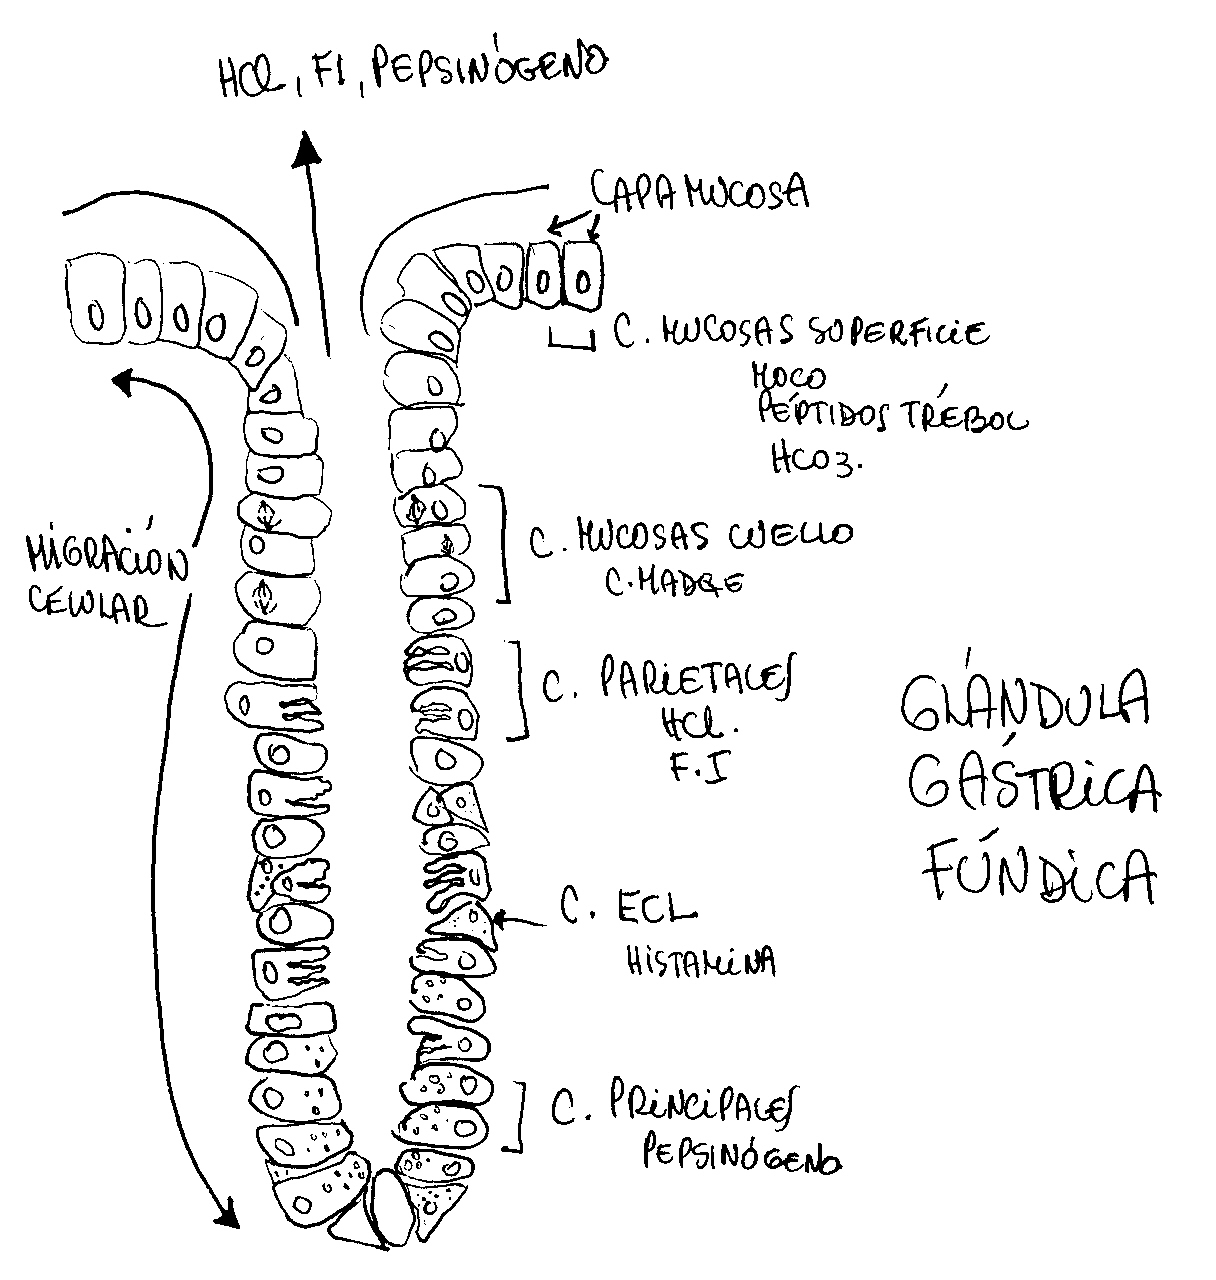 HCl, FI, PEPSINÓGENO
CAPA MUCOSA
C. MUCOSAS SUPERFICIE
MOCO
PÉPTIDOS TRÉBOL
HCO3.
MIGRACIÓN
CELULAR
C. MUCOSAS CUELLO
C. MADRE
C. PARIETALES
HCl.
F.I
GLÁNDULA
GÁSTRICA
FÚNDICA
C. ECL
HISTAMINA
C. PRINCIPALES
PEPSINÓGENO